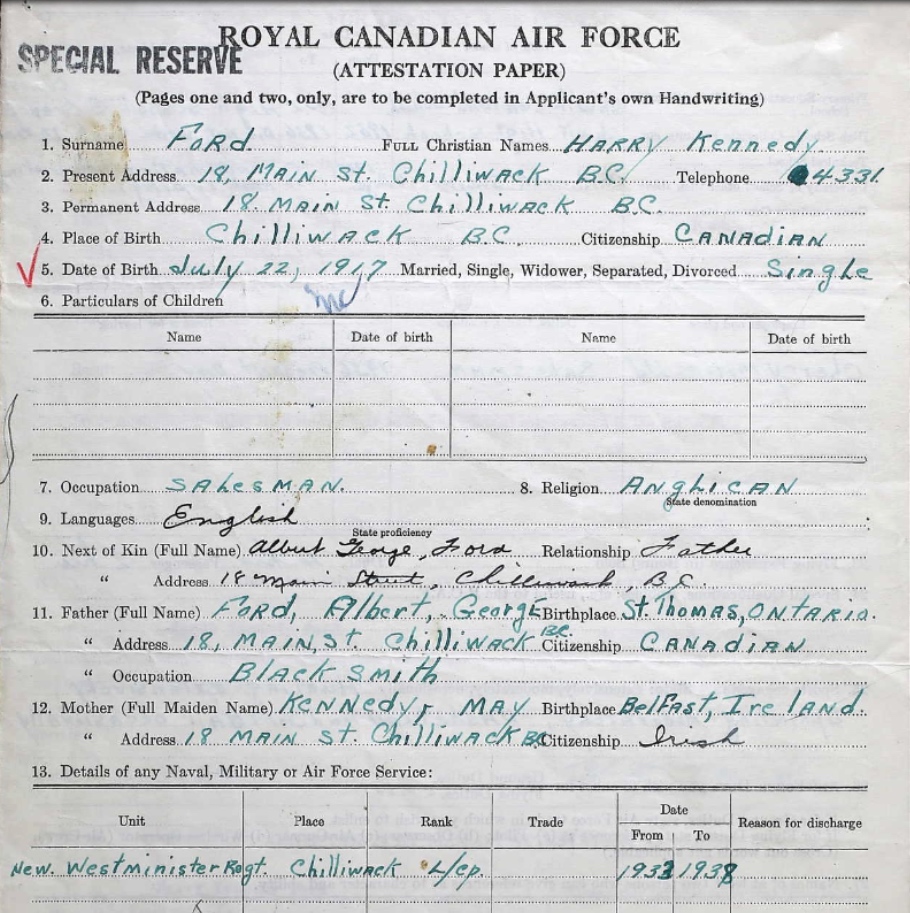 ROYAL CANADIAN AIR FORCE
SPECIAL RESERVE
(ATTESTATION PAPER)
(Pages one and two, only, are to be completed in Applicant's own Handwriting)
1. Surname Ford FULL Christian Names HARRY Kennedy
2. Present Address 18, MAIN St. Chilliwack B.C. Telephone 4331
3. Permanent Address 18. MAIN St. Chilliwack B.C.
4. Place of Birth Chilliwack B.C. Citizenship CANADIAN
5. Date of Birth July 22, 1917 Married, Single, Widower, Separated, Divorced Single
6. Particulars of Children
Name Date of birth Name Date of birth
7. Occupation SALESMAN. 8. Religion ANGLICAN
State denomination
9. Languages English
State proficiency
10. Next of Kin (Full Name) Albert George, Ford Relationship Father
" Address 18 Main Street, Chilliwack, B.C.
11. Father (Full Name) FORD, Albert, George Birthplace St. Thomas, ONTARIO.
" Address 18, MAIN, St. Chilliwack B.C. Citizenship CANADIAN
" Occupation BLACK SMITH
12. Mother (Full Maiden Name) KENNEDY, MAY Birthplace Belfast, Ireland.
" Address 18 MAIN St. Chilliwack BC Citizenship Irish
13. Details of any Naval, Military or Air Force Service:
Unit Place Rank Trade Date From To Reason for discharge
New. Westminister Regt. Chilliwack L/cp. 1938